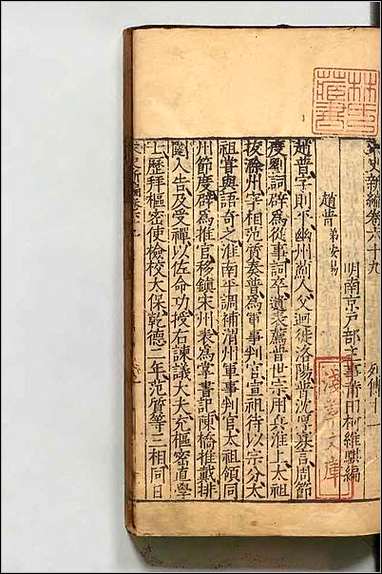 宋史新編卷六十九 列傳十一
明南京戶部主事莆田柯維騏編
趙普 弟安易
趙普字則平幽州薊人父迴徙洛陽普沈厚寡言周節
度劉詞辟為從事詞卒遺表薦普世宗用兵淮上太祖
拔滁州宰相范質奏普為軍事判官宣祖待以宗分太
祖嘗與語奇之淮南平調補渭州軍事判官太祖領同
州節度辟為推官移鎮宋州表為掌書記陳橋推戴排
闥入告及受禪以佐命功授右諫議大夫充樞密直學
士歷拜樞密使檢校太保乾德二年范質等三相同日
宋史新編卷六十九
林氏藏書
文庫